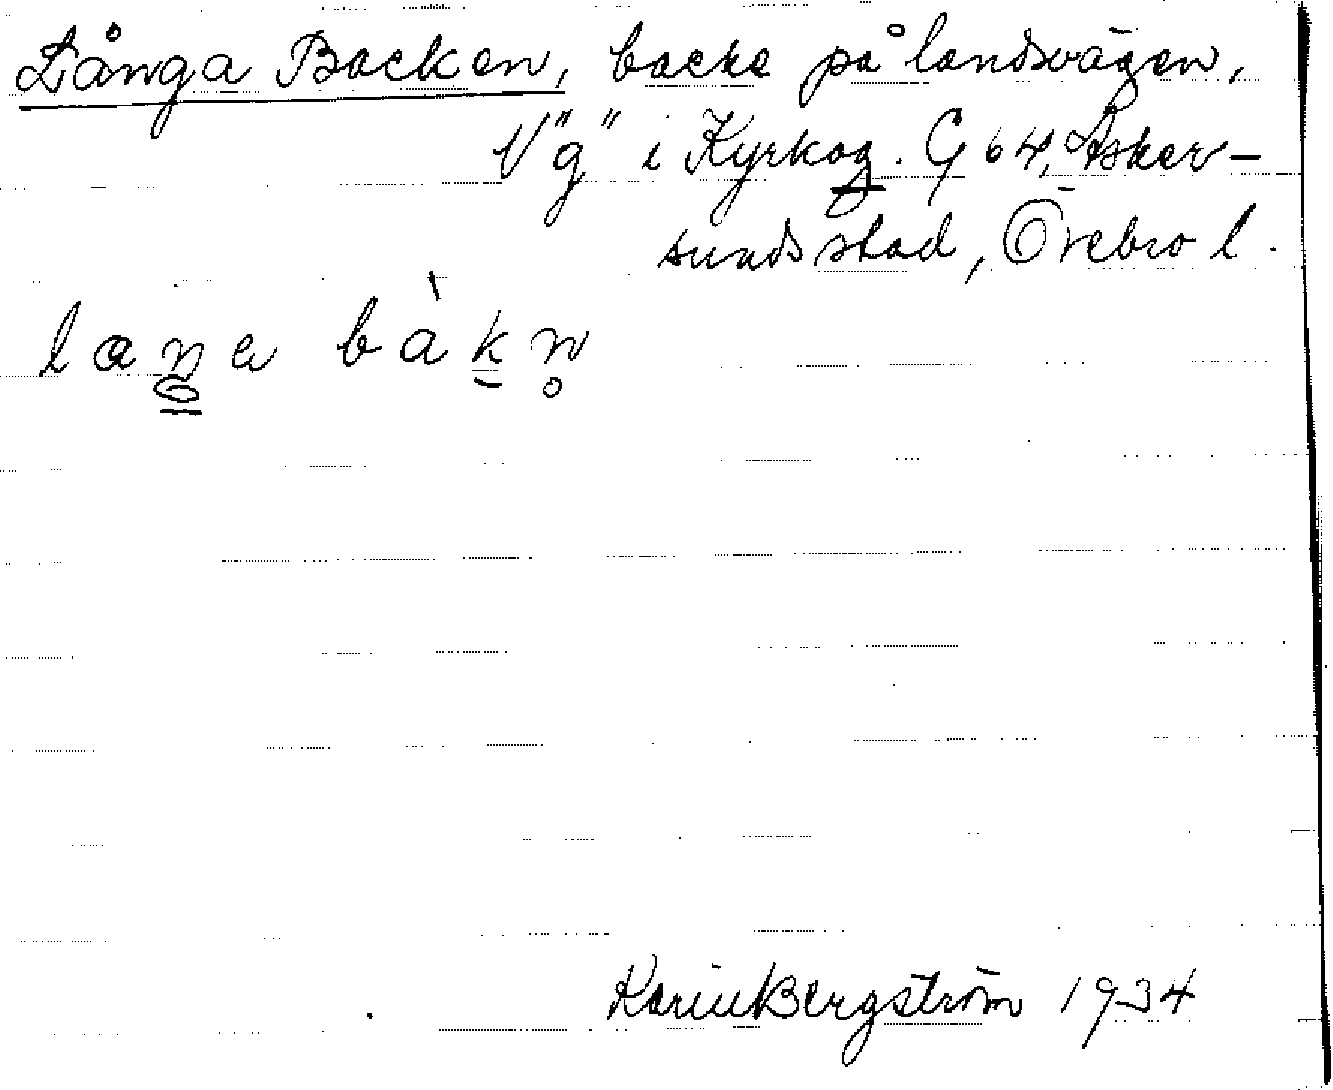 Långa Backen, backe på landsvägen,
V "g" i Kyrkog. G 64, Asker-
sunds stad, Örebro l.
laŋa bàkn̥
Karin Bergström 1934